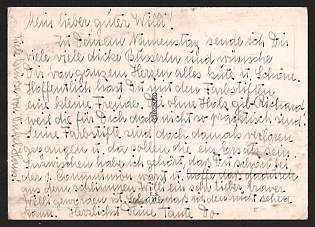 Mein lieber, guter Willi!
Zu Deinem Namenstag sende ich Dir
viele viele dicke Busserln und wünsche
Dir von ganzem Herzen alles Gute u. Schöne.
Hoffentlich hast Du mit den Farbstiften
eine kleine Freude. Die ohne Holz gib Richard,
weil die für Dich doch nicht so praktisch sind.
Seine Farbstifte sind doch damals verloren
gegangen u. da sollen die ein Ersatz sein.
Inzwischen habe ich gehört, daß Du schon bei
der 1. Communion warst u. hoffe, daß dadurch
aus dem schlimmen Willi ein sehr lieber braver
Willi geworden ist. Schade, daß ich den nicht sehen
kann. Herzlichst Deine Tante Do